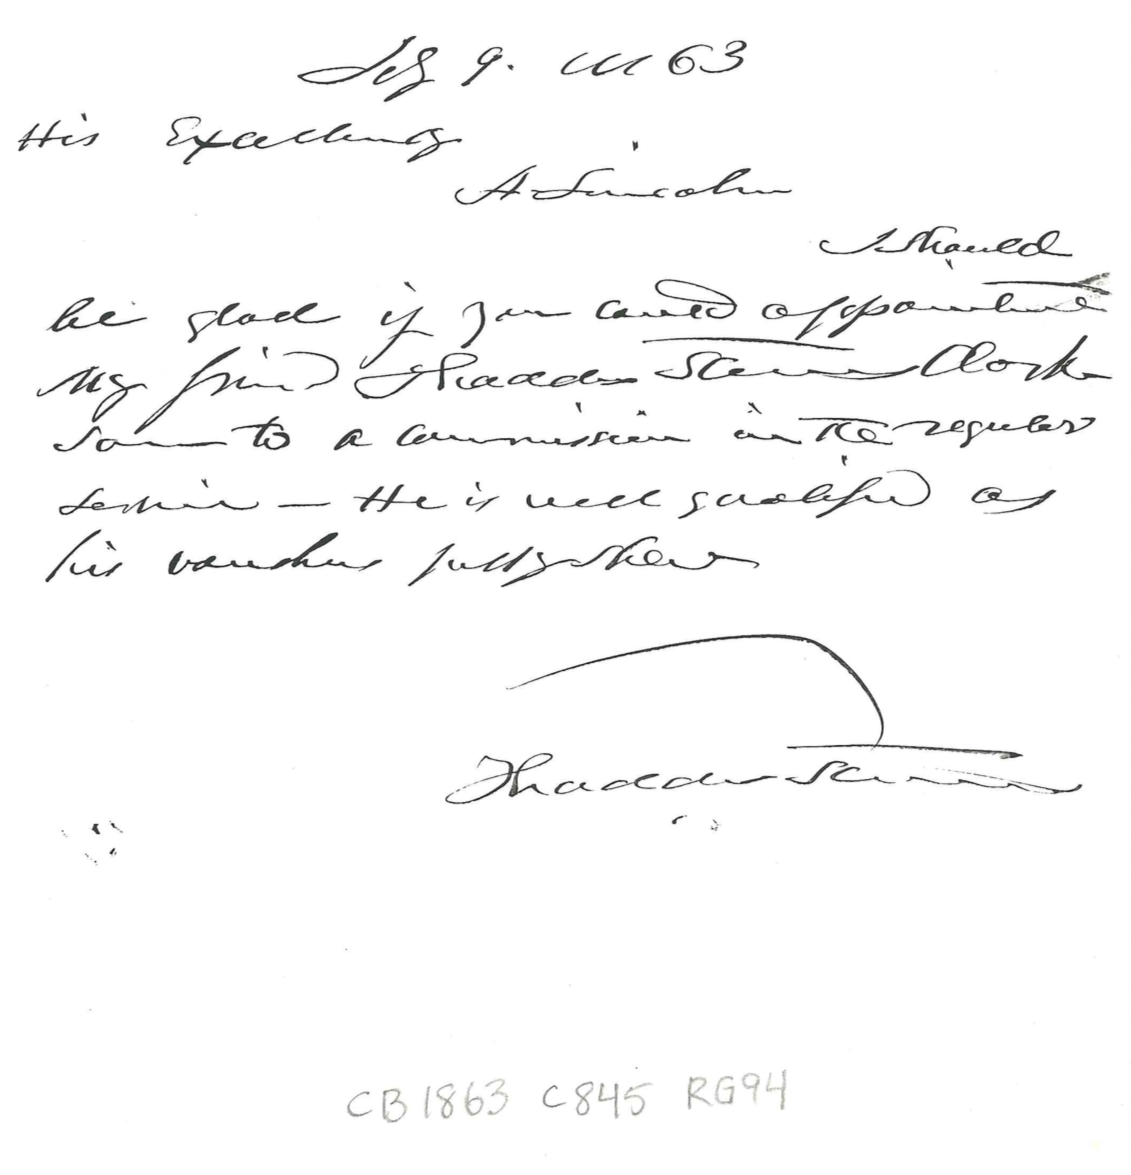 Feby 9. 1863
His Excellency
A Lincoln
I should
be glad if you could appoint
My friend Thaddeus Stevens Clark
son to a commission in the regular
service – He is well qualified as
his vouchers fully show
Thaddeus Stevens
CB 1863 C845 RG94